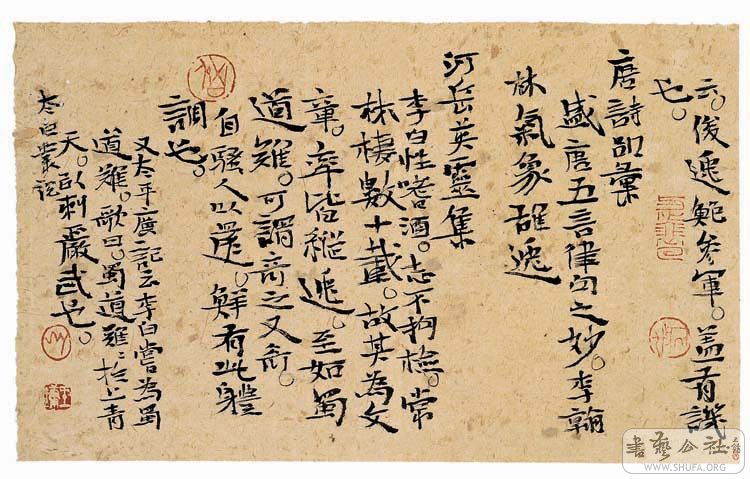 云。俊逸鮑參軍。盖有譏
也。
唐詩品彙
盛唐五言律句之妙。李翰
林氣象雄逸
河岳英靈集
李白性嗜酒。志不拘檢。常
林棲數十載。故其為文
章。率皆縱逸。至如蜀
道難。可謂奇之又奇
自騷人以還。鮮有此體
調也。
又太平廣記云李白嘗為蜀
道難。歌曰。蜀道難〻於上青
天。以刺嚴武也。
太白叢說
書藝公社
WWW.SHUFA.ORG